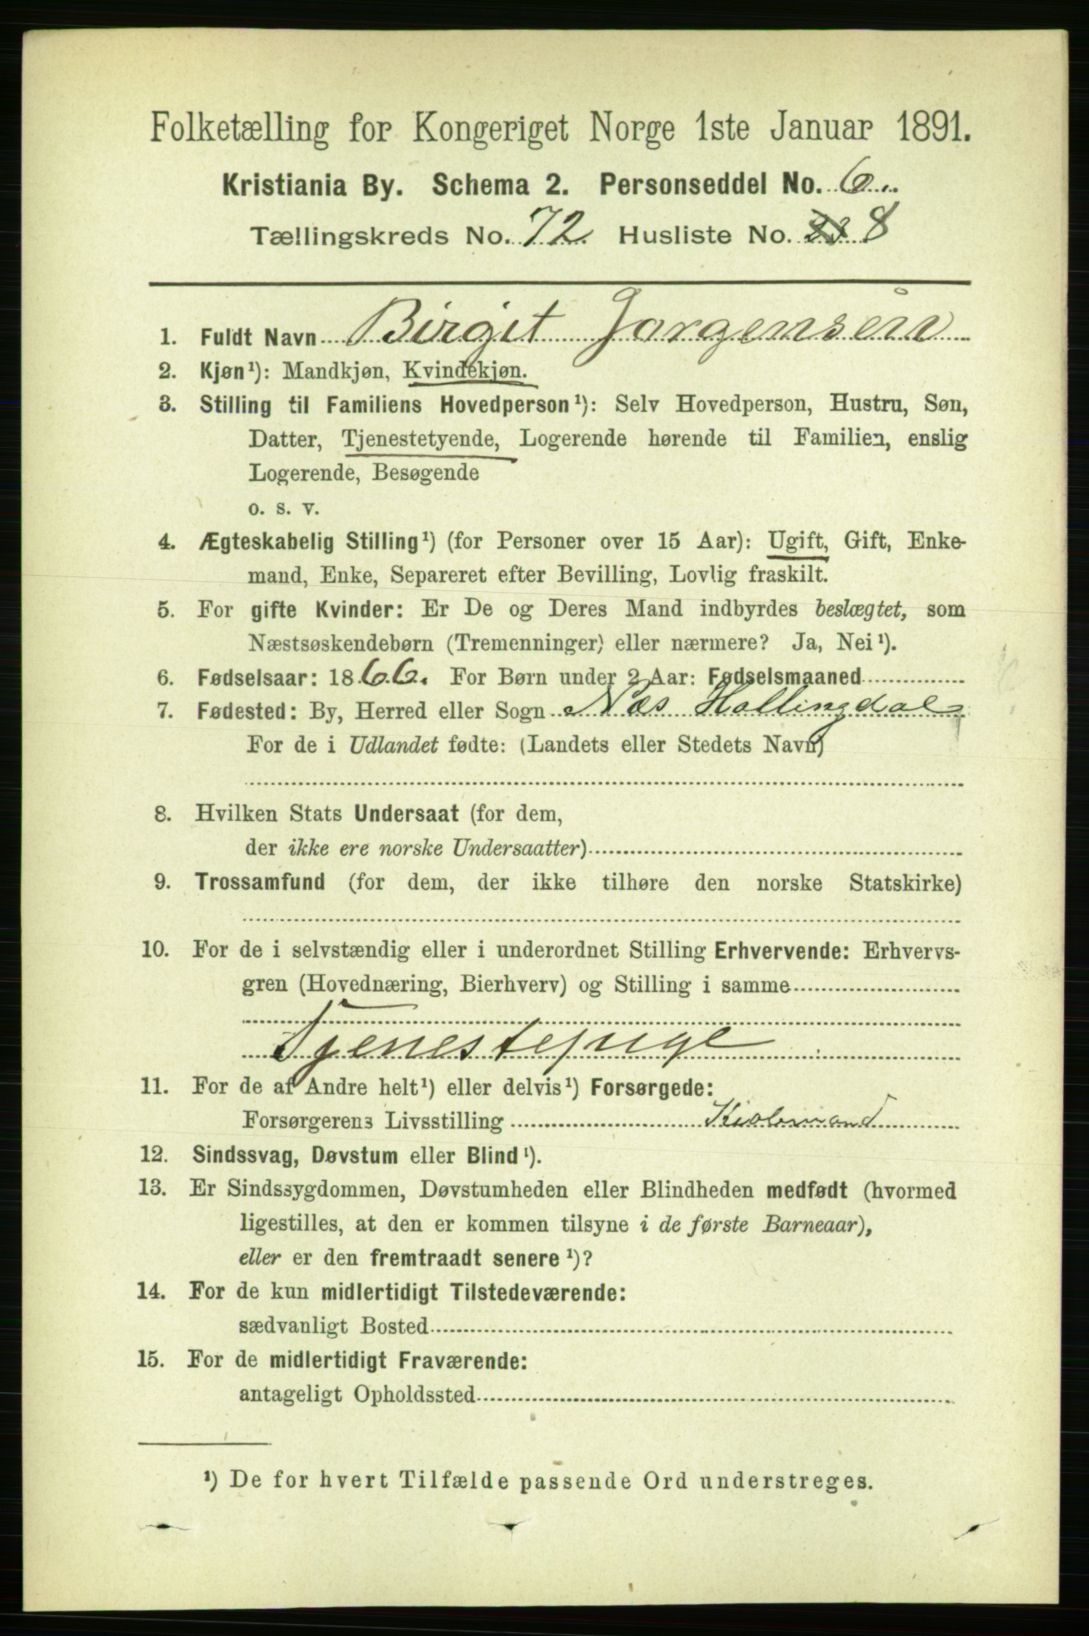 Folketælling for Kongeriget Norge 1ste Januar 1891.
Kristiania By. Schema 2. Personseddel No. 6.
Tællingskreds No. 72 Husliste No. 8
1. Fuldt Navn Birgit Jørgensen
2. Kjøn¹): Mandkjøn, Kvindekjøn.
3. Stilling til Familiens Hovedperson¹): Selv Hovedperson, Hustru, Søn,
Datter, Tjenestetyende, Logerende hørende til Familien, enslig
Logerende, Besøgende
o. s. v.
4. Ægteskabelig Stilling¹) (for Personer over 15 Aar): Ugift, Gift, Enke-
mand, Enke, Separeret efter Bevilling, Lovlig fraskilt.
5. For gifte Kvinder: Er De og Deres Mand indbyrdes beslægtet, som
Næstsøskendebørn (Tremenninger) eller nærmere? Ja, Nei¹).
6. Fødselsaar: 1866. For Børn under 2 Aar: Fødselsmaaned
7. Fødested: By, Herred eller Sogn Næs Hallingdal
For de i Udlandet fødte: (Landets eller Stedets Navn)
8. Hvilken Stats Undersaat (for dem,
der ikke ere norske Undersaatter)
9. Trossamfund (for dem, der ikke tilhøre den norske Statskirke)
10. For de i selvstændig eller i underordnet Stilling Erhvervende: Erhvervs-
gren (Hovednæring, Bierhverv) og Stilling i samme
Tjenestepige
11. For de af Andre helt¹) eller delvis¹) Forsørgede:
Forsørgerens Livsstilling
12. Sindssvag, Døvstum eller Blind¹).
13. Er Sindssygdommen, Døvstumheden eller Blindheden medfødt (hvormed
ligestilles, at den er kommen tilsyne i de første Barneaar),
eller er den fremtraadt senere¹)?
14. For de kun midlertidigt Tilstedeværende:
sædvanligt Bosted
15. For de midlertidigt Fraværende:
antageligt Opholdssted
¹) De for hvert Tilfælde passende Ord understreges.